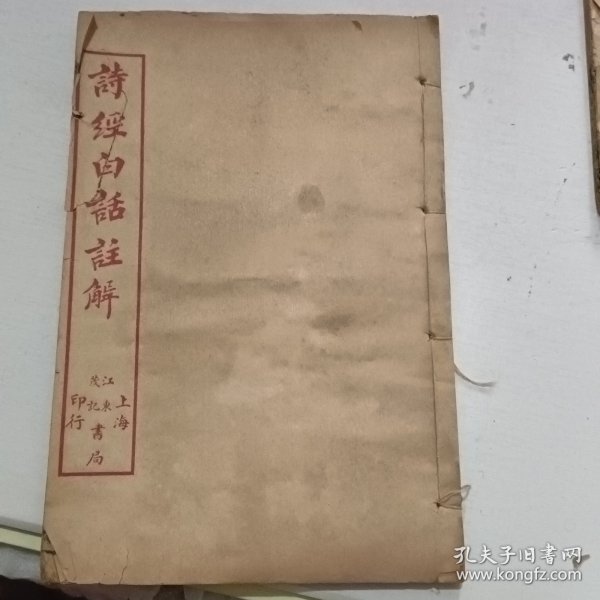 詩經白話註解
上海
江東
茂記
書局
印行
孔夫子旧书网
www.kongfz.com